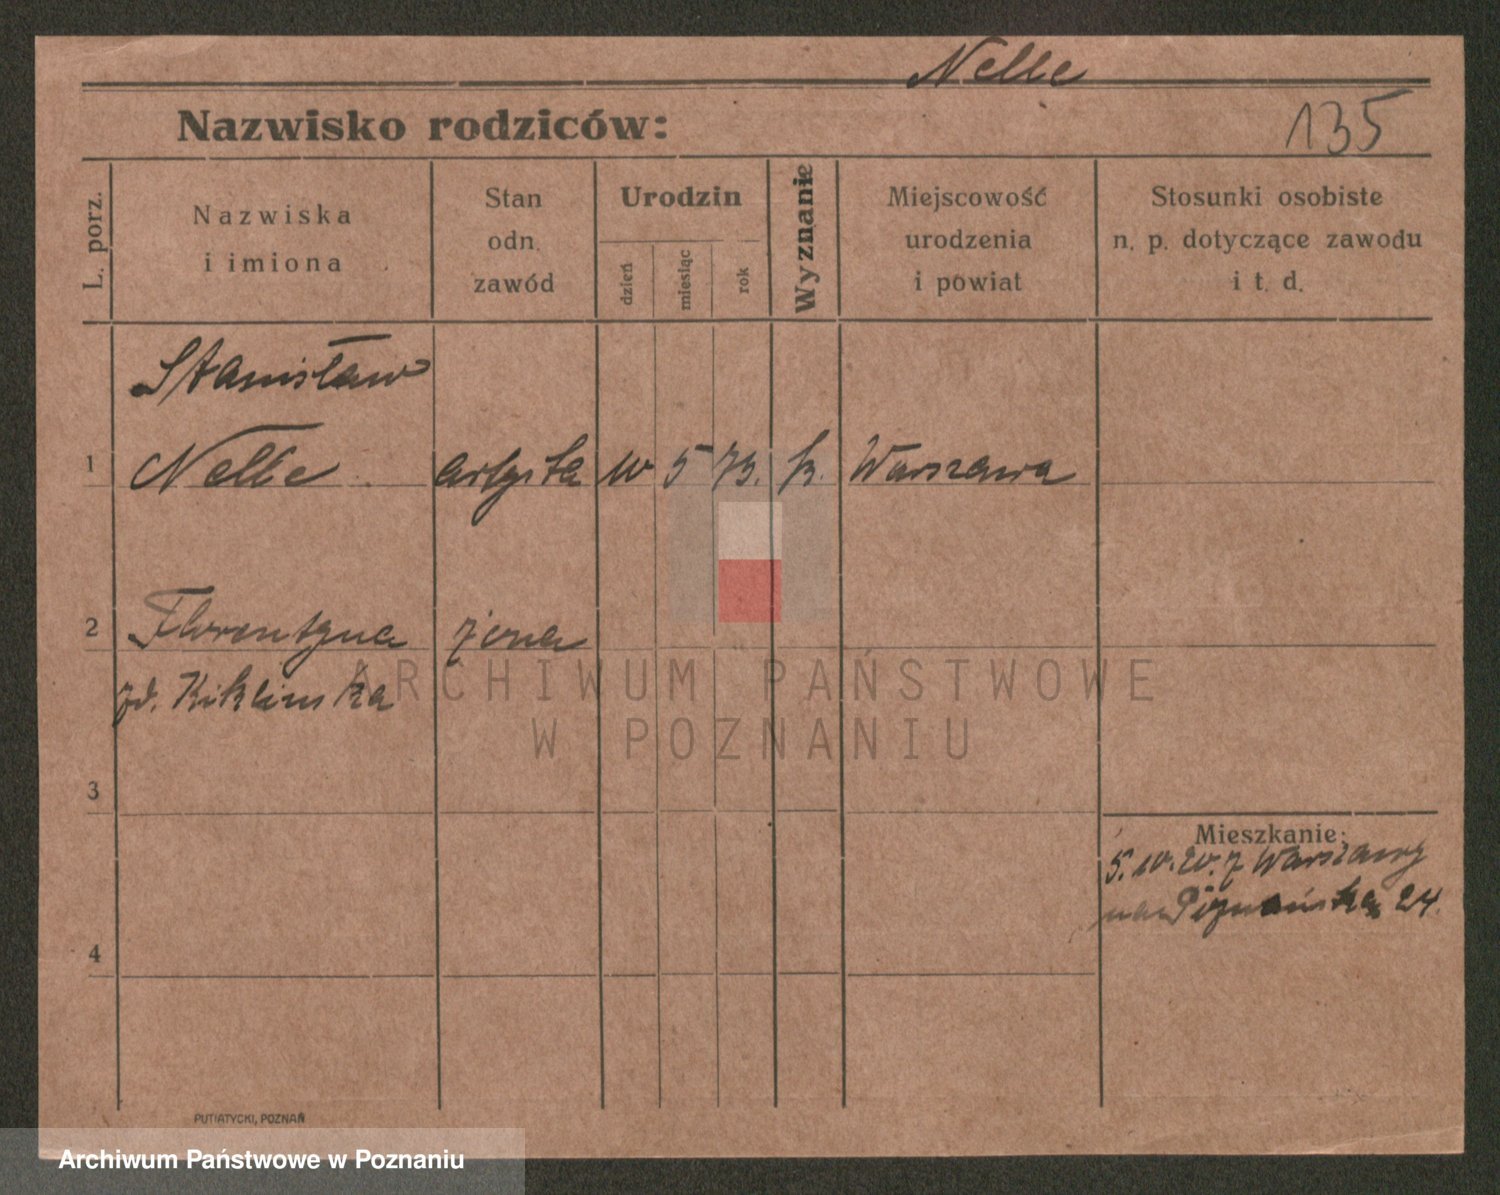 Nelle
Nazwisko rodziców:
135
L. porz.
Nazwiska
i imiona
Stan
odn.
zawód
Urodzin
dzień
miesiąc
rok
Wyznanie
Miejscowość
urodzenia
i powiat
Stosunki osobiste
n. p. dotyczące zawodu
i t. d.
Stanisław
1 Nelle artysta 10 5 73. k. Warszawa
2 Florentyna żona
zd.
3
Mieszkanie:
5.10.20. z Warszawy
na 24.
4
PUTIATYCKI, POZNAŃ
ARCHIWUM PAŃSTWOWE
W POZNANIU
Archiwum Państwowe w Poznaniu